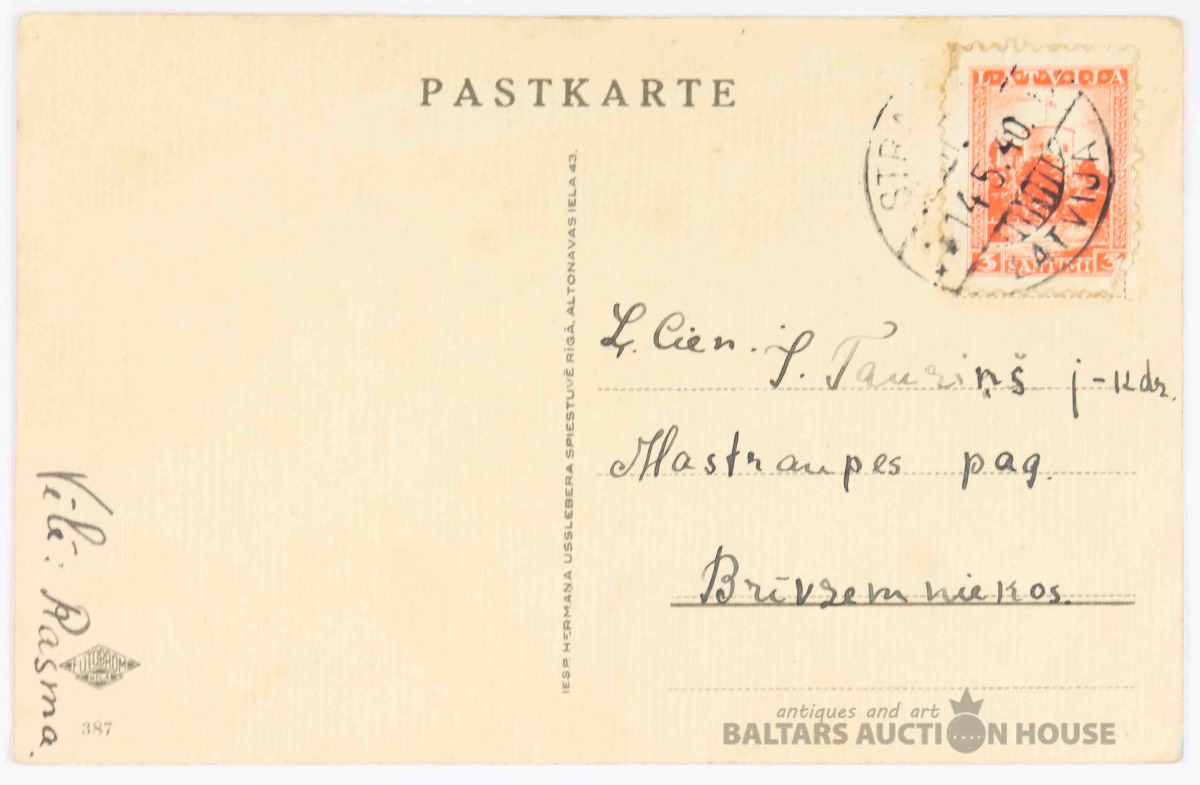 PASTKARTE
LATVIJA
14.5.40.
LATVIJA
3 SANTIMI 3
IESP. HERMANA USSLEBERA SPIESTUVĒ RĪGĀ, ALTONAVAS IELA 43.
Ļ. Cien. J. Tauriņš j-kdz.
Mastraupes pag.
Brīvzemniekos.
Vēlē: Rasma.
FOTOBROM
RIGA
387
antiques and art
BALTARS AUCTION HOUSE